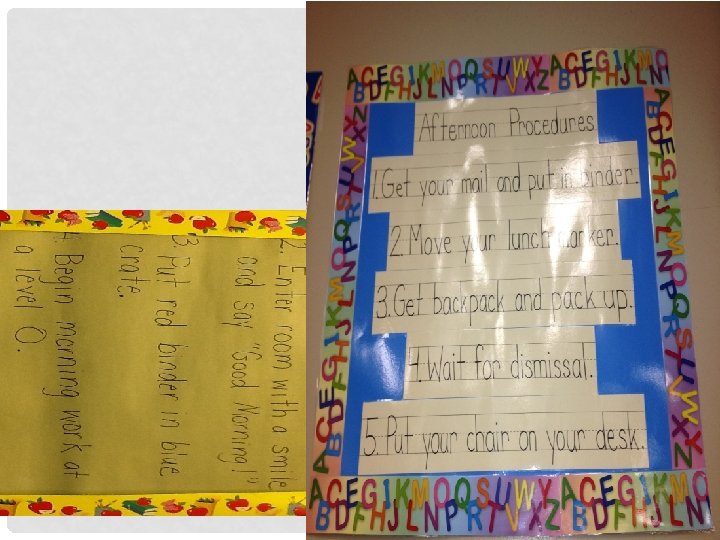 2. Enter room with a smile
and say "Good Morning!"
3. Put red binder in blue
crate.
4. Begin morning work at
a level 0.
Afternoon Procedures
1. Get your mail and put in binder.
2. Move your lunch marker.
3. Get backpack and pack up.
4. Wait for dismissal.
5. Put your chair on your desk.